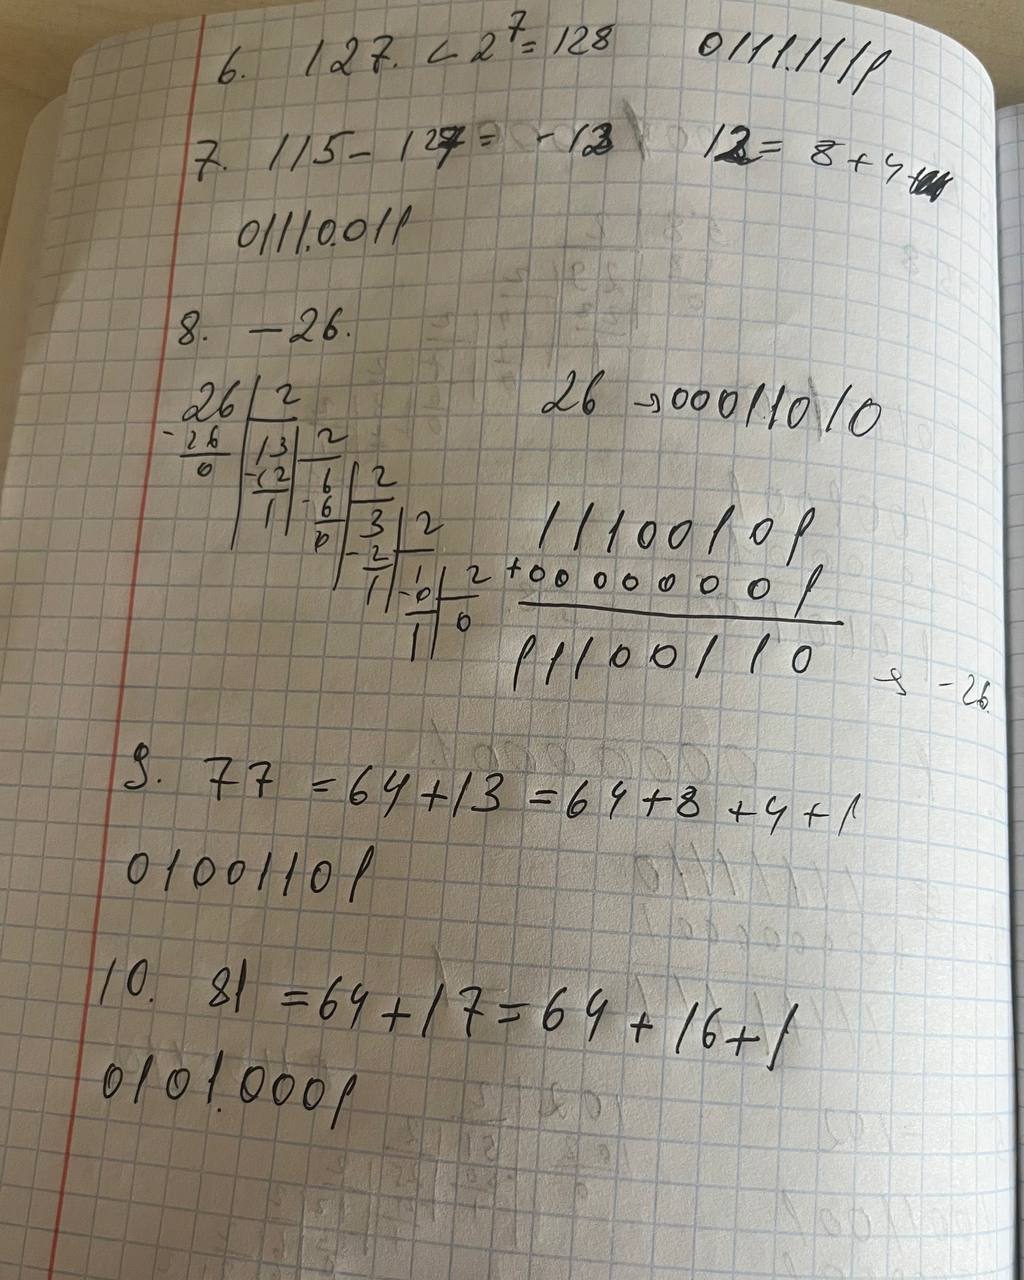 6. 127. < 2^7 = 128 0111.1111
7. 115 - 127 = -12 12 = 8 + 4
0111.0011
8. -26.
26 | 2 26 → 00011010
-26 | 13 | 2
0 | -12 | 6 | 2
1 | -6 | 3 | 2 11100101
0 | -2 | 1 | 2 +00000001
1 | -0 | 0
1 11100110 → -26.
9. 77 = 64 + 13 = 64 + 8 + 4 + 1
01001101
10. 81 = 64 + 17 = 64 + 16 + 1
0101.0001